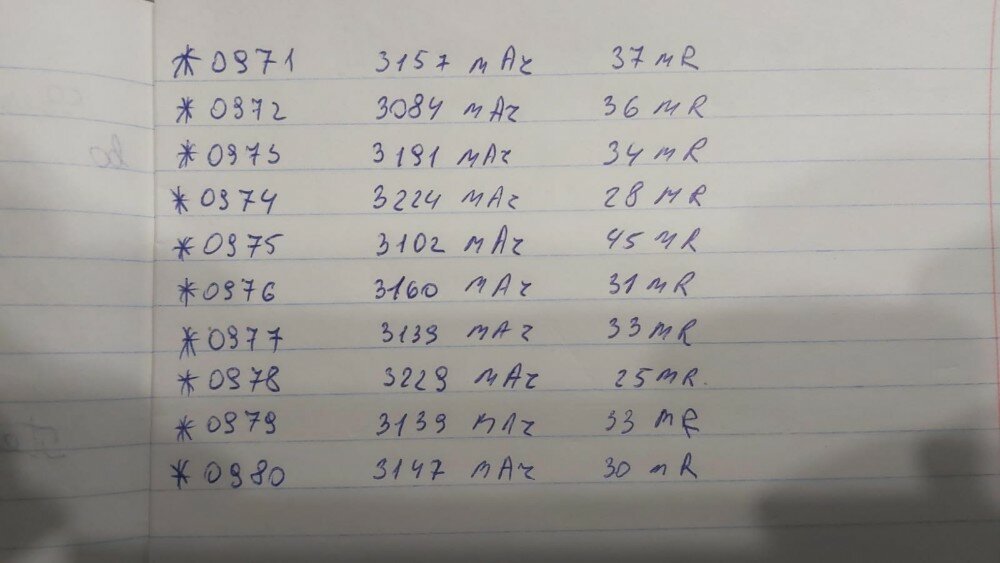 * 0971 3157 mAч 37 mR
* 0972 3084 mAч 36 mR
* 0973 3191 mAч 34 mR
* 0974 3224 mAч 28 mR
* 0975 3102 mAч 45 mR
* 0976 3160 mAч 31 mR
* 0977 3139 mAч 33 mR
* 0978 3229 mAч 25 mR.
* 0979 3139 mAч 33 mR
* 0980 3147 mAч 30 mR